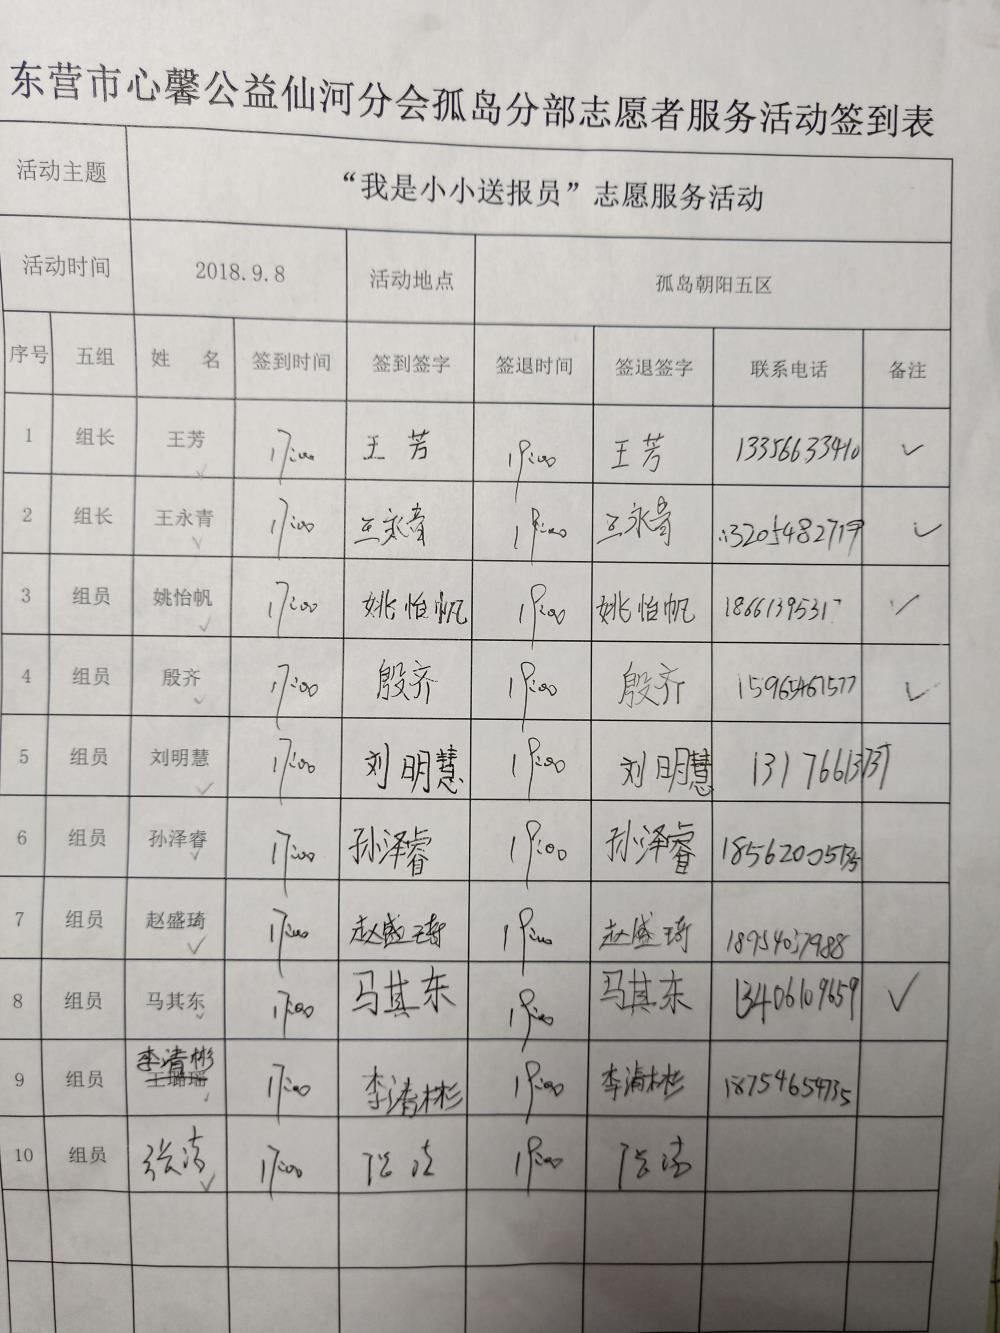 东营市心馨公益仙河分会孤岛分部志愿者服务活动签到表
活动主题 “我是小小送报员”志愿服务活动
活动时间 2018.9.8 活动地点 孤岛朝阳五区
序号 五组 姓 名 签到时间 签到签字 签退时间 签退签字 联系电话 备注
1 组长 王芳 17:00 王芳 19:00 王芳 13356633410 ✓
2 组长 王永青 17:00 王永青 19:00 王永青 13205482719 ✓
3 组员 姚怡帆 17:00 姚怡帆 19:00 姚怡帆 1866139531 ✓
4 组员 殷齐 17:00 殷齐 19:00 殷齐 15965461577 ✓
5 组员 刘明慧 17:00 刘明慧 19:00 刘明慧
6 组员 孙泽睿 17:00 孙泽睿 19:00 孙泽睿
7 组员 赵盛琦 17:00 赵盛琦 19:00 赵盛琦 18954037988
8 组员 马其东 17:00 马其东 19:00 马其东 13406109659 ✓
李清彬
9 组员 17:00 李清彬 19:00 李清彬 18754654735
10 组员 张清 17:00 张清 19:00 张清